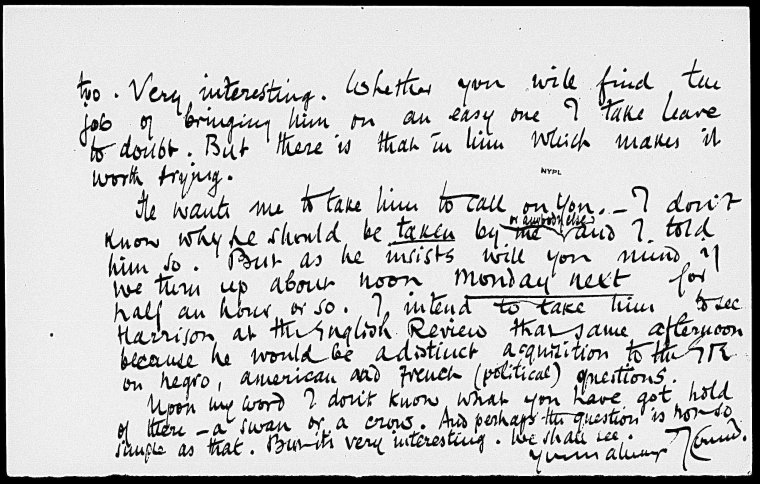 too. Very interesting. Whether you will find the
job of bringing him on an easy one I take leave
to doubt. But there is that in him which makes it
worth trying.
NYPL
He wants me to take him to call on you. – I don't
or anybody else
know why he should be taken by me and I told
him so. But as he insists will you mind if
we turn up about noon Monday next for
half an hour or so. I intend to take him to see
Harrison at the English Review that same afternoon
because he would be a distinct acquisition to the ER
on negro, american and French (political) questions.
Upon my word I don't know what you have got hold
of there – a swan or a crow. And perhaps the question is not so
simple as that. But it's very interesting. We shall see.
Yours always J Conrad.